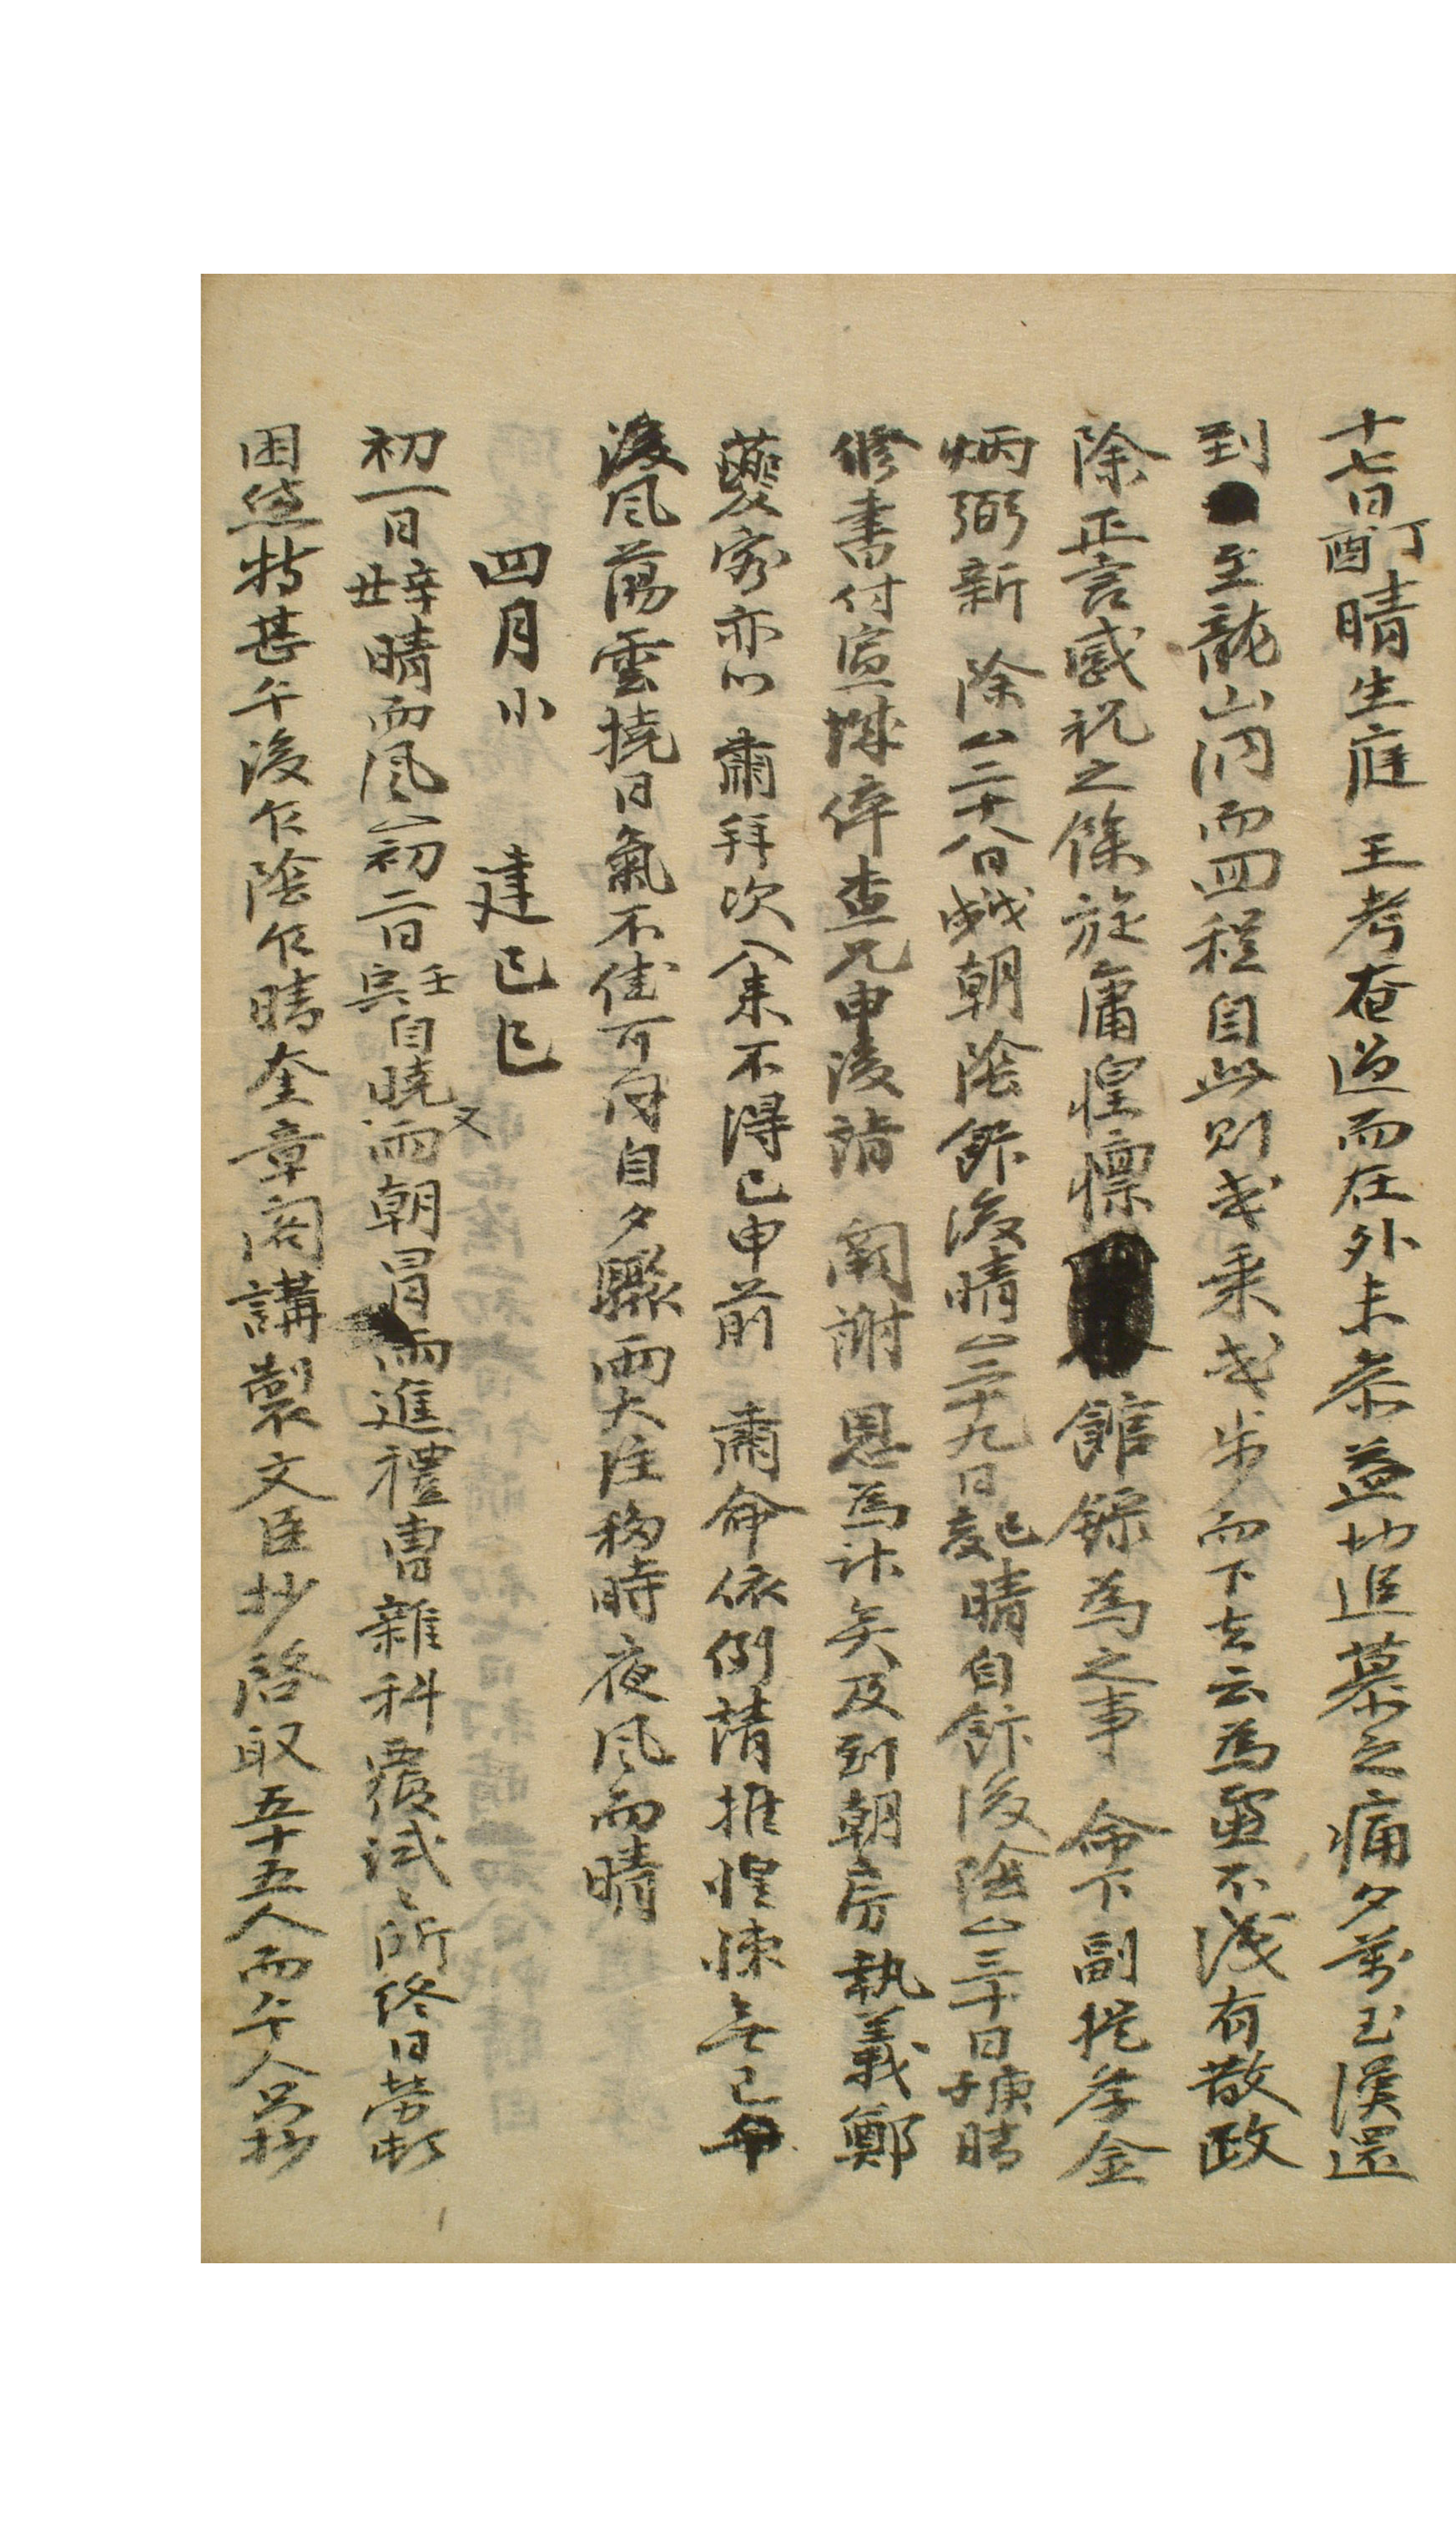 十七日丁酉晴生庭王考奄過而在外未忝益切追慕之痛夕前玉漢還
到至龍山洞而四程自此則或乘或步而下去云爲慮不淺有散政
除正言感祝之餘旋庸惶懍館錄爲之事命下副提學金
炳弼新除二十八日戊戌朝陰餘後晴二十九日己亥晴自餘後陰三十日庚子晴
修書付宣城倅査兄申陵詣闕謝恩爲計矣及到朝房執義鄭
夔家亦以肅拜次入來不得已申前肅命依例請推惶悚無已
後風蕩雲撓日氣不佳可勝自夕驟雨大注移時夜風而晴
四月小建己巳
初一日辛丑晴而風初二日壬寅自曉又雨朝冒雨進禮曹雜科覆試々所終日勞頓
困憊特甚午後乍陰乍晴奎章閣講製文臣抄啓取五十五人而午人呂抄